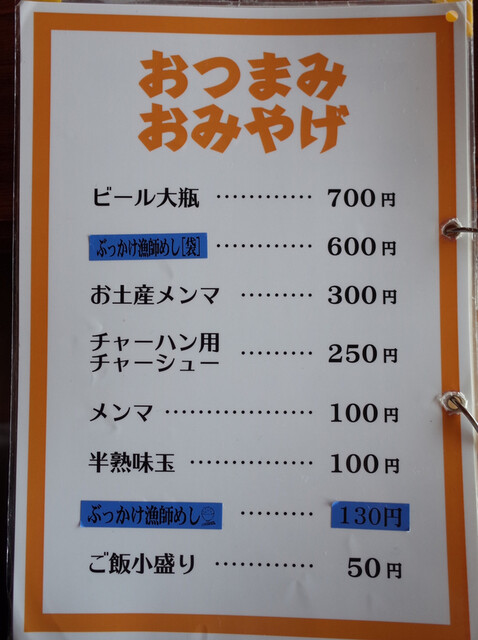 おつまみ
おみやげ
ビール大瓶 ………… 700円
ぶっかけ漁師めし[袋] ………… 600円
お土産メンマ ……… 300円
チャーハン用
チャーシュー ……… 250円
メンマ ……………… 100円
半熟味玉 …………… 100円
ぶっかけ漁師めし ……… 130円
ご飯小盛り ………… 50円